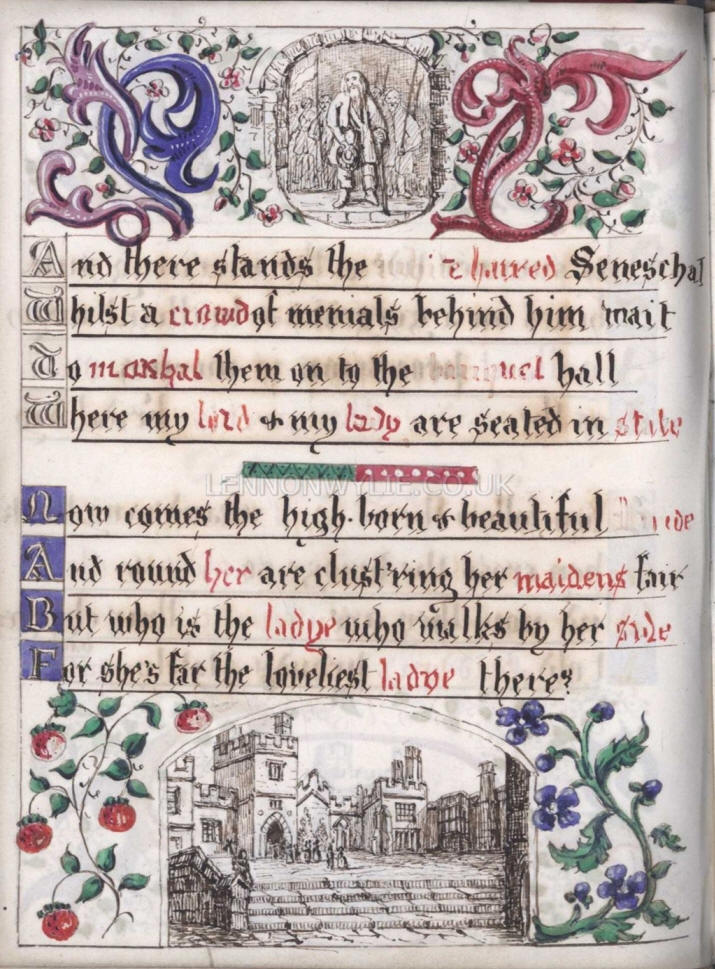 And there stands the haired Seneschal
Whilst a crowd of menials behind him wait
To marshal them on to the banquet hall
Where my lord & my lady are seated in state
LENNONWYLIE.CO.UK
Now comes the high-born & beautiful Bride
And round her are clust'ring her maidens fair
But who is the ladye who walks by her side
For she's far the loveliest ladye there?